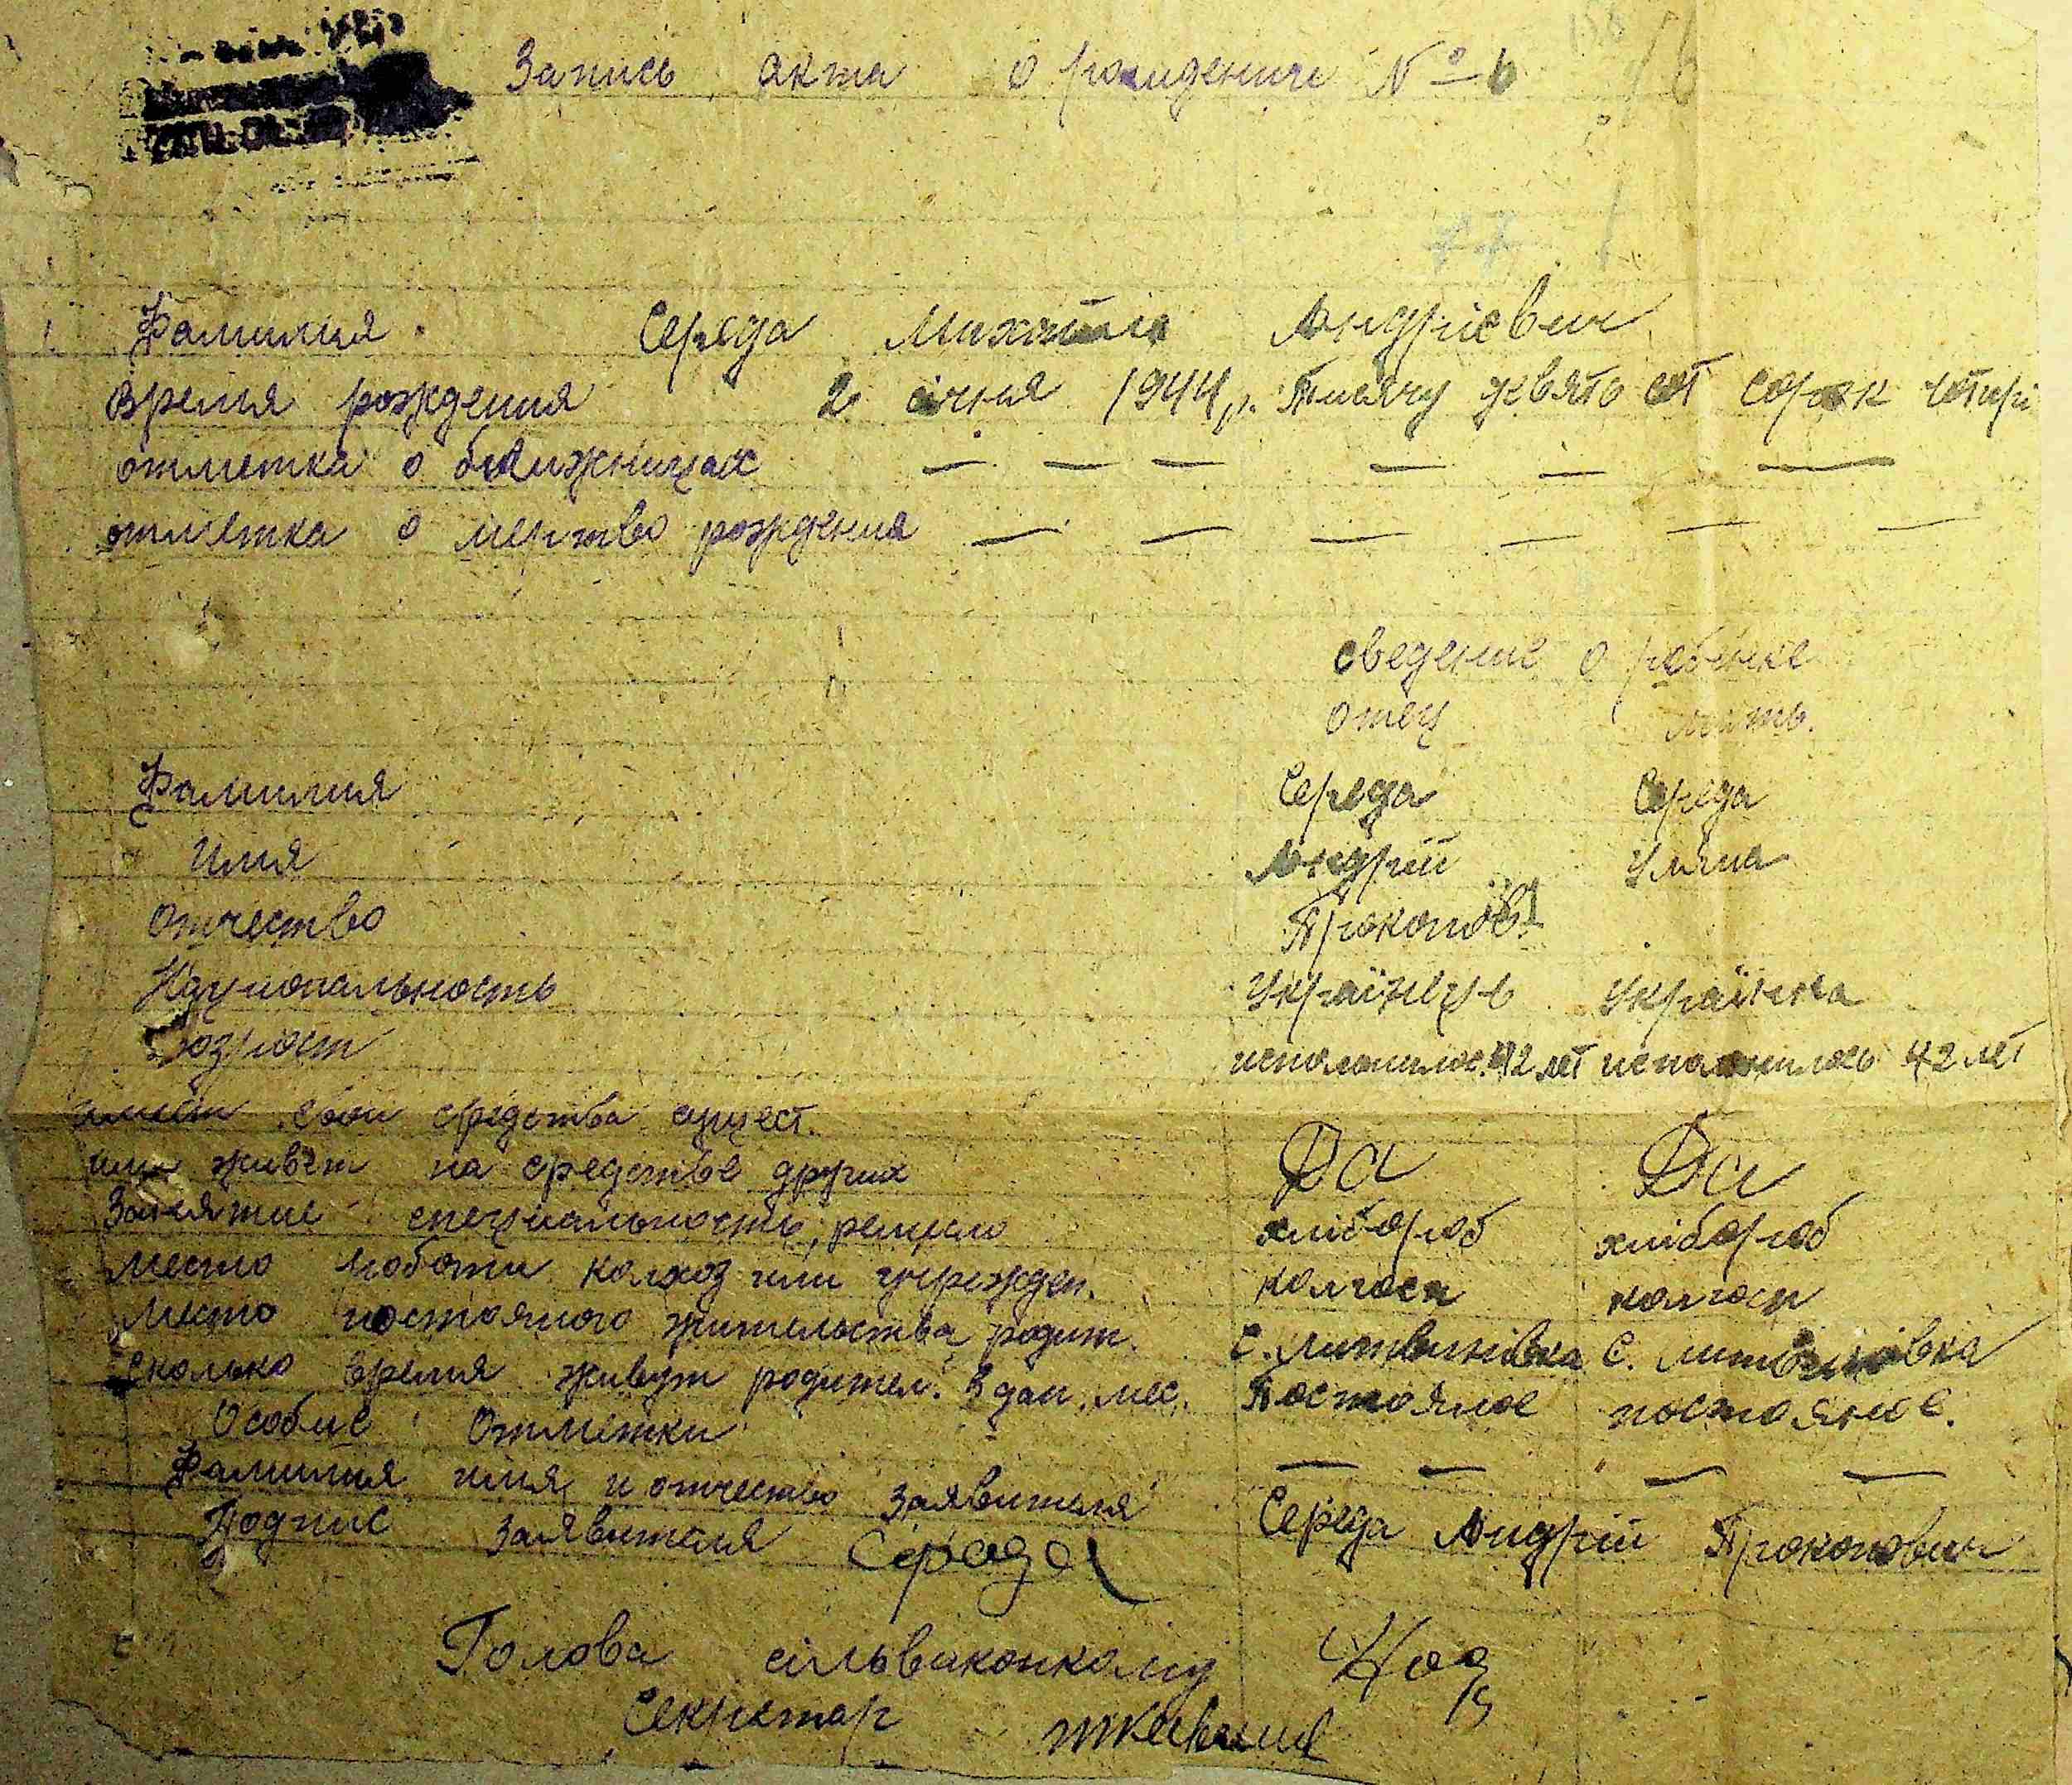 Запись акта о рождении № 6
77
Фамилия Середа Михайло Андрієвич
время рождения 2 січня 1944 р. Тисячу девято сот сорок четирі
отметка о близницах — — — — — —
отметка о мертво рождения — — — — — —
сведение о ребенке
отец мать.
Фамилия Середа Середа
Имя Андрій Уляна
Отчество Прокопов.
Национальность Українець Українка
Возраст исполнилос. 42 лет исполнилось 42 лет
имеет свои средства сущест.
или живет на средстве других Да Да
Занятие специальность, ремесло хлібороб хлібороб
Место роботи колхоз или учрежден. колгосп колгосп
Место постояного жительства родит. С. Литвинівка С. Литвинівка
Сколько время живут родител. в дан. мес. Постояное постояное.
Особие Отметки — — — —
Фамилия имя и отчество заявителя Середа Андрій Прокопович
Подпис заявителя Середа
Голова сільвиконкому
Секретар